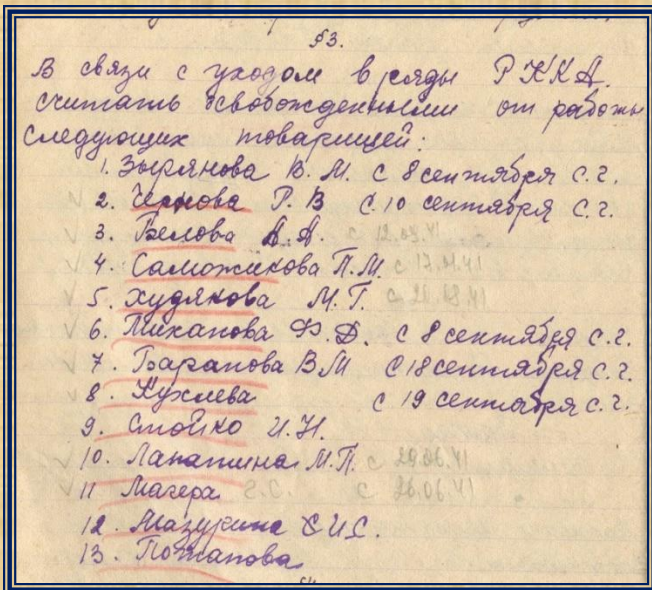 §3.
В связи с уходом в ряды РККА.
считать освобожденными от работы
следующих товарищей:
1. Зырянова В. М. с 8 сентября с.г.
2. Чернова Р. В с. 10 сентября с.г.
3. Белова А.А. с 12.09.41
4. Саможикова П.М с
5. Худякова М.Г. с
6. Миханова Ф.Д. с 8 сентября с.г.
7. Баранова ВМ с 18 сентября с.г.
8. Кухлева с 19 сентября с.г.
9. Стойко И.Н.
10. Лапатина М.П. с 29.06.41
11 Магера с 26.06.41
12. Мазурина С.И.С.
13. Потапова